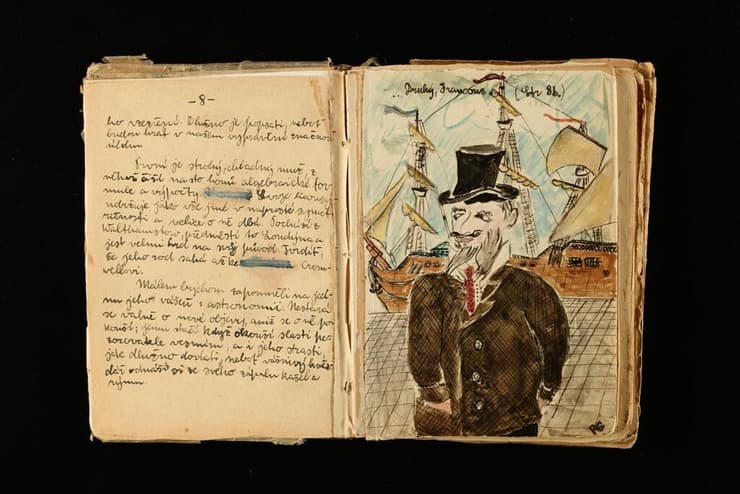 -8-
ho vzezření. Dlužno je popsati, neboť
budou hrát v našem vyprávění značnou
úlohu.
První je strohý, chladný muž, z
něhož čiší na sto honů algebraické for-
mule a výpočty. Svoje
udržuje jako vše jiné v naprosté
a velice o ně dbá. Pochází z
Walthamstow, předměstí to Londýna a
jest velmi hrd na svůj původ. Tvrdí,
že jeho rod sahá až ke Crom-
vellovi.
Málem bychom zapomněli na jed-
nu jeho vášeň: astronomii. Nestará
se valně o nové objevy, aniž se o ně po-
kouší; jemu stačí když okouší slasti po-
zorovatele vesmíru, a i jeho strasti
jak dlužno dodati, neboť vášnivý hvěz-
dář odnáší si ze svého zápalu kašel a
rýmu.
... Druhý, Francouz (Str 8b.)
PG